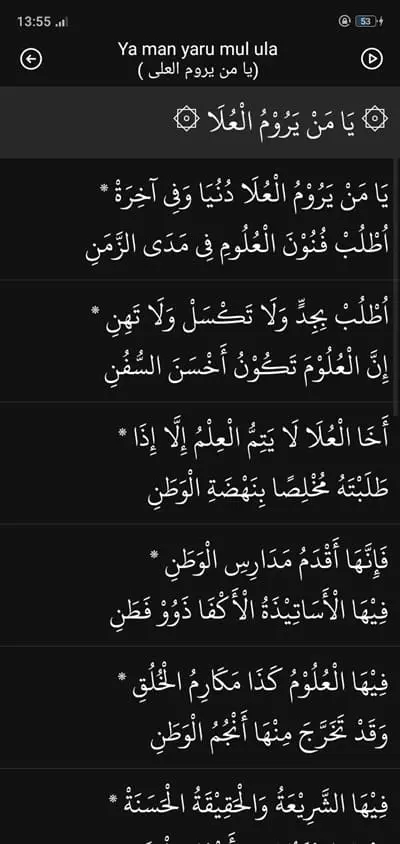 13:55
53
Ya man yaru mul ula
(يا من يروم العلى )
۞ يَا مَنْ يَرُوْمُ الْعُلَا ۞
يَا مَنْ يَرُوْمُ الْعُلَا دُنْيَا وَفِى آخِرَةْ *
اُطْلُبْ فُنُوْنَ الْعُلُومِ فِى مَدَى الزَّمَنِ
اُطْلُبْ بِجِدٍّ وَلَا تَكْسَلْ وَلَا تَهِنِ *
إِنَّ الْعُلُوْمَ تَكُوْنُ أَحْسَنَ السُّفُنِ
أَخَا الْعُلَا لَا يَتِمُّ الْعِلْمُ إِلَّا إِذَا *
طَلَبْتَهُ مُخْلِصًا بِنَهْضَةِ الْوَطَنِ
فَإِنَّهَا أَقْدَمُ مَدَارِسِ الْوَطَنِ *
فِيْهَا الْأَسَاتِيْذَةُ الْأَكْفَا ذَوُوْ فَطَنِ
فِيْهَا الْعُلُوْمُ كَذَا مَكَارِمُ الْخُلُقِ *
وَقَدْ تَخَرَّجَ مِنْهَا أَنْجُمُ الْوَطَنِ
فِيْهَا الشَّرِيْعَةُ وَالْحَقِيْقَةُ الْحَسَنَةْ *